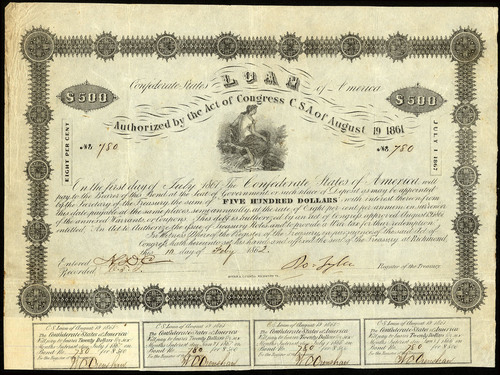 LOAN
Confederate States of America
$500 $500
Authorized by the Act of Congress C.S.A. of August 19 1861
EIGHT PER CENT
JULY 1 1867
No. 780 No. 780
On the first day of July 1867 The Confederate States of America, will
pay to the Bearer of this Bond at the Seat of Government, or such place of Deposit as may be appointed
by the Secretary of the Treasury, the sum of FIVE HUNDRED DOLLARS with interest thereon from
this date, payable at the same places, semi-annually, at the rate of Eight per cent per annum on surrender
of the annexed Warrants, or Coupons. This debt is authorized by an act of Congress approved August 19, 1861
entitled "An Act to Authorize the Issue of Treasury Notes and to provide a War tax for their redemption"
In Witness Whereof the Register of the Treasury in pursuance of the said Act of
Congress, hath hereunto set his hand and affixed the seal of the Treasury at Richmond
this 10 day of Feby 1862
Entered
Recorded
Ro. Tyler Register of the Treasury
C.S. Loan of August 19 1861
The Confederate States of America
Will pay to bearer Twenty Dollars Six
Months Interest due
Bond No. 780 for $500
C.S. Loan of August 19 1861
The Confederate States of America
Will pay to bearer Twenty Dollars Six
Months Interest due
Bond No. 780 for $500
C.S. Loan of August 19 1861
The Confederate States of America
Will pay to bearer Twenty Dollars Six
Months Interest due
Bond No. 780 for $500
C.S. Loan of August 19 1861
The Confederate States of America
Will pay to bearer Twenty Dollars Six
Months Interest due
Bond No. 780 for $500